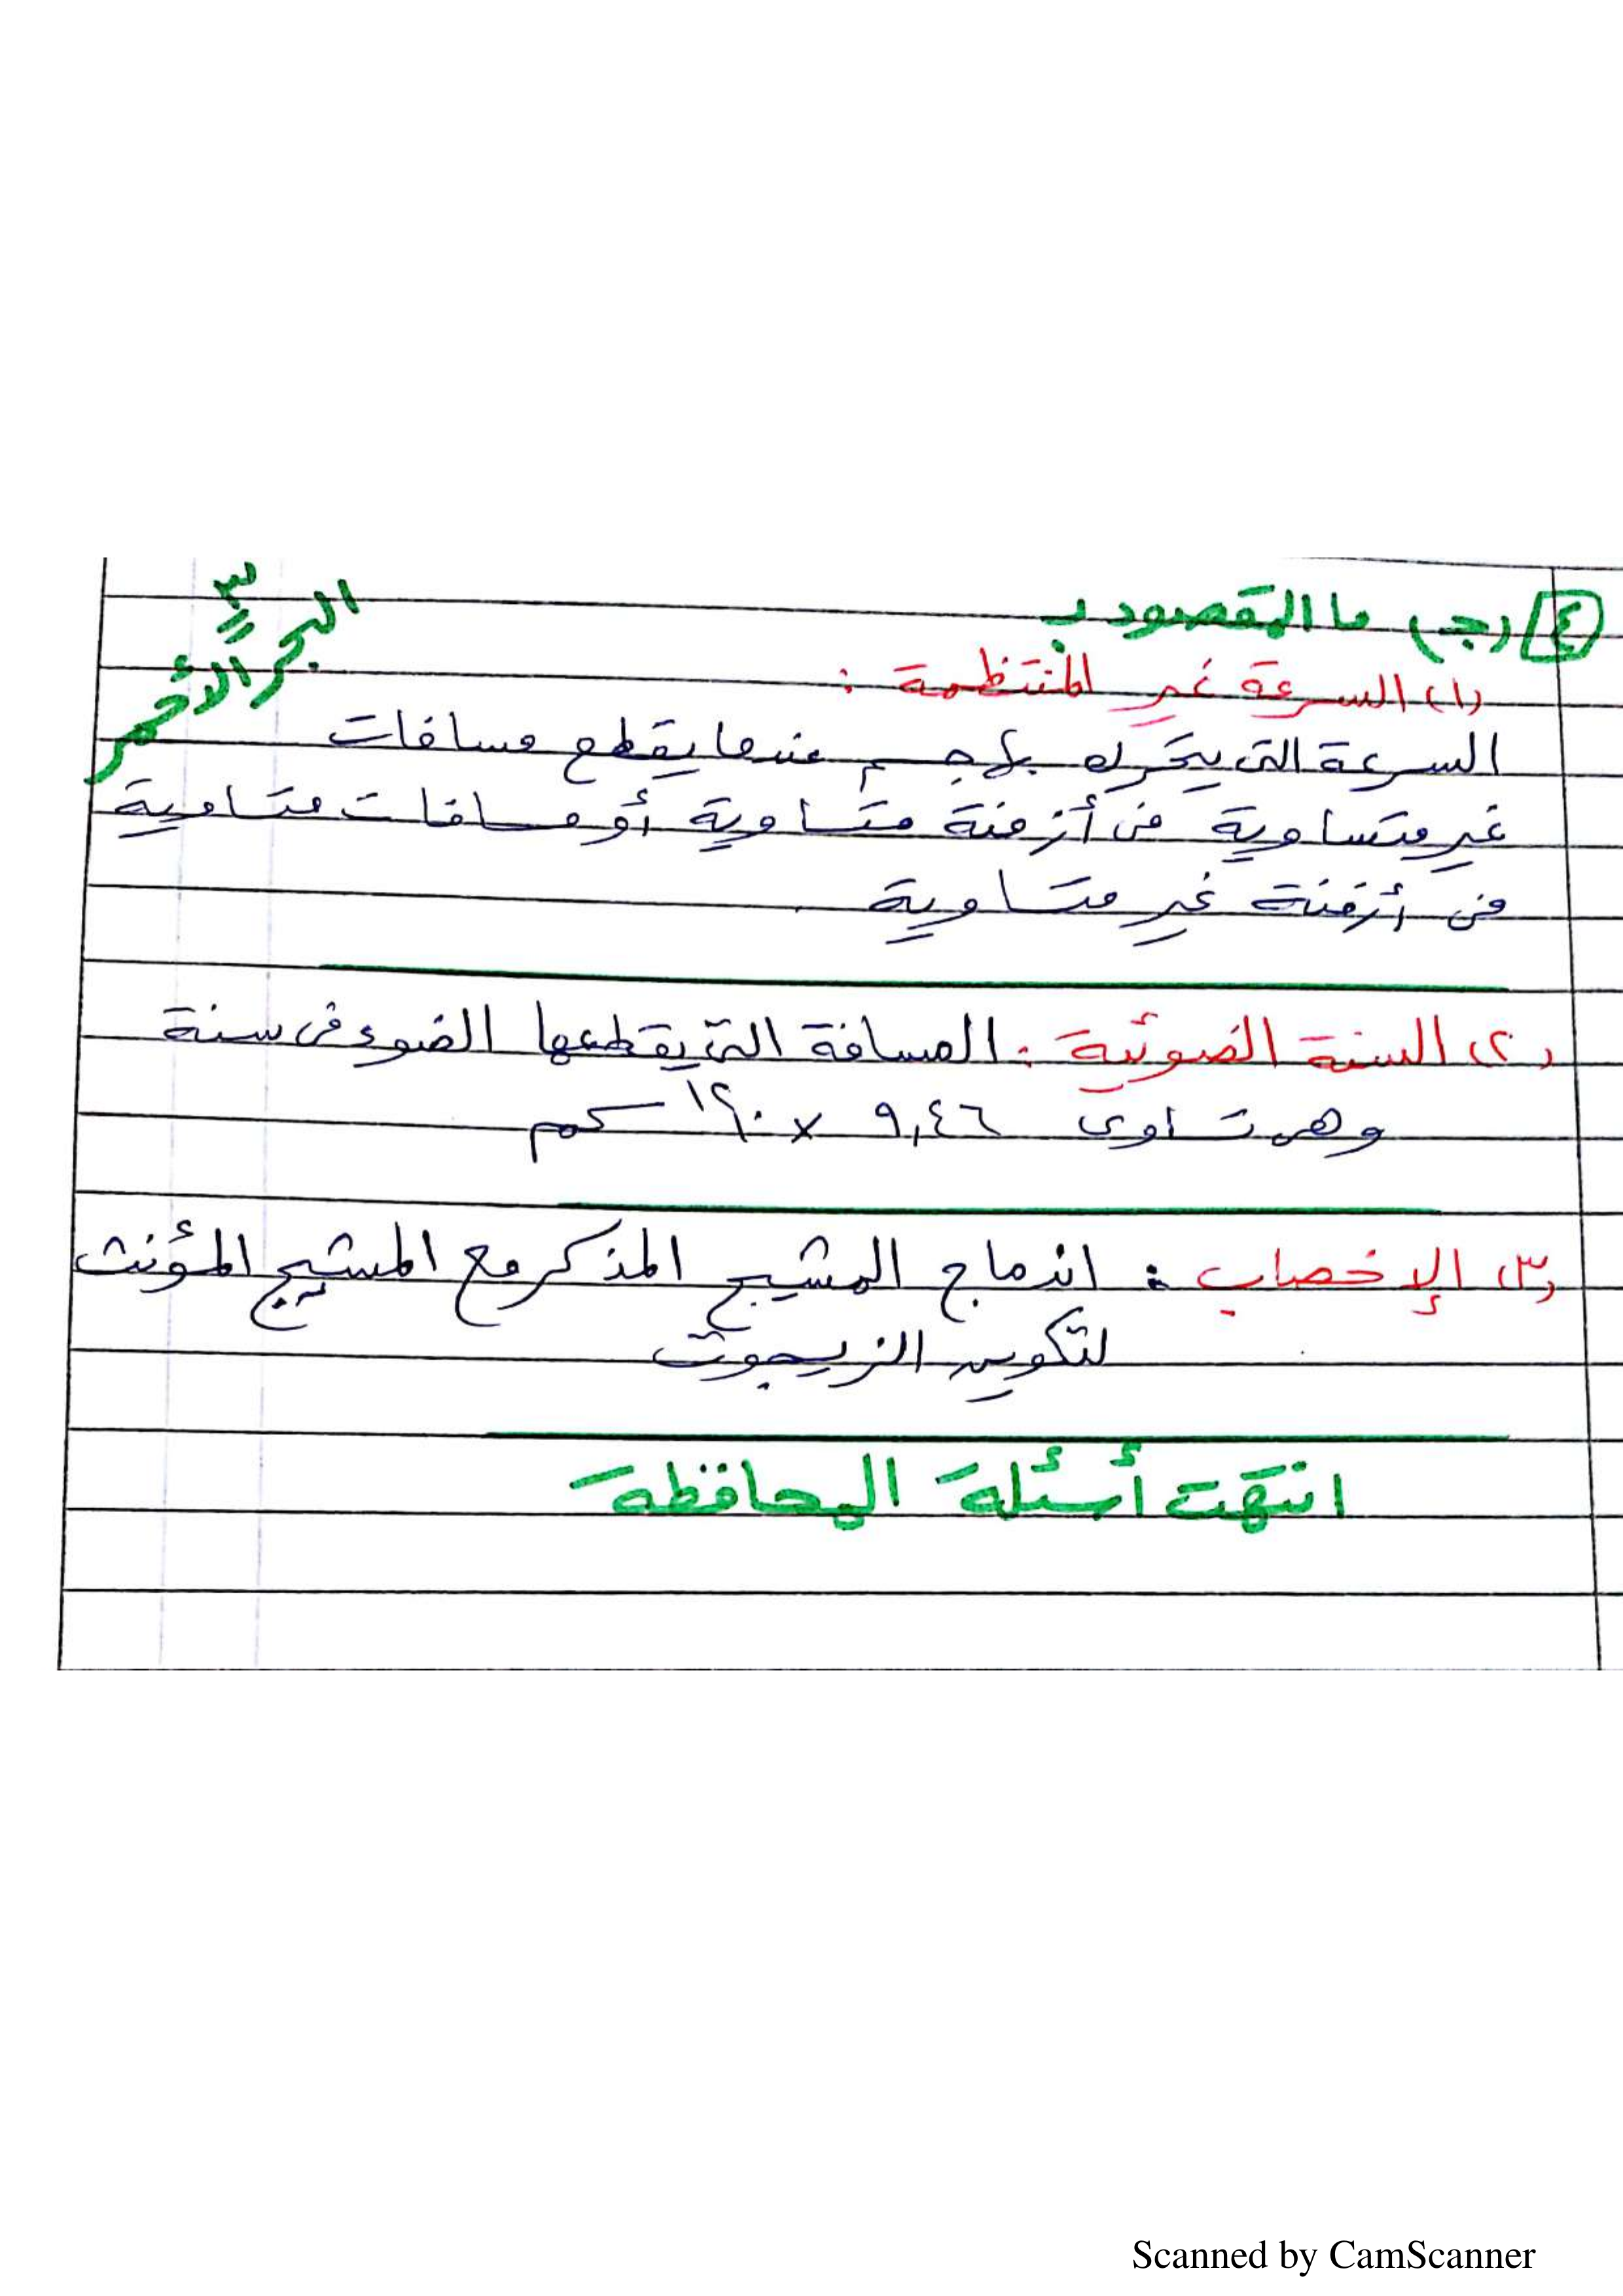 ٣
البحر الأحمر
٤ (جـ) ما المقصود بـ
(١) السرعة غير المنتظمة :
السرعة التى يتحرك بها جسم عندما يقطع مسافات
غير متساوية فى أزمنة متساوية أو مسافات متساوية
فى أزمنة غير متساوية
(٢) السنة الضوئية : المسافة التى يقطعها الضوء فى سنة
وهى تساوى ٩,٤٦ × ١٠^١٢ كم
(٣) الإخصاب : اندماج المشيج المذكر مع المشيج المؤنث
لتكوين الزيجوت
انتهت أسئلة المحافظة
Scanned by CamScanner